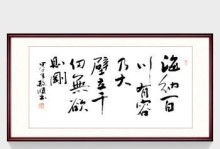 海納百
川有容
乃大
壁立千
仞無欲
則剛